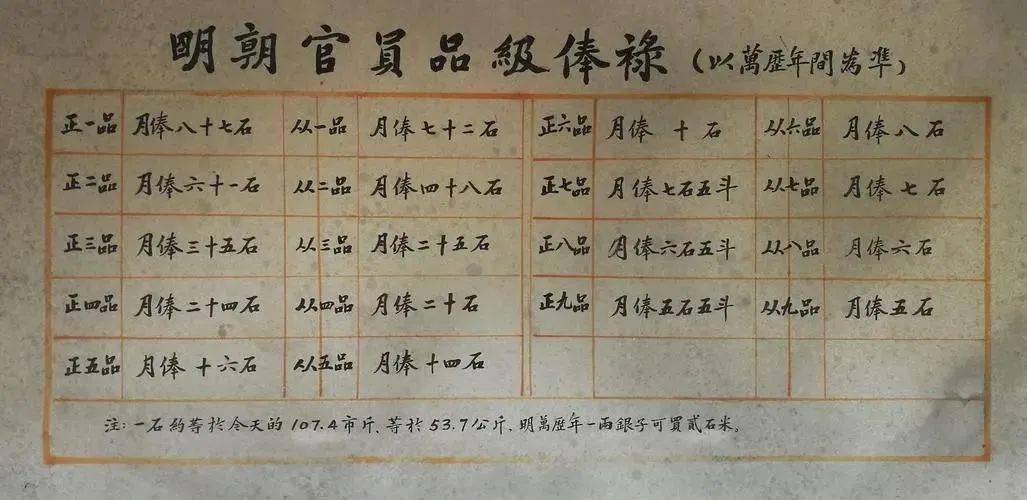 明朝官員品級俸祿(以萬歷年間為準)
正一品 月俸八十七石 从一品 月俸七十二石 正六品 月俸十石 从六品 月俸八石
正二品 月俸六十一石 从二品 月俸四十八石 正七品 月俸七石五斗 从七品 月俸七石
正三品 月俸三十五石 从三品 月俸二十五石 正八品 月俸六石五斗 从八品 月俸六石
正四品 月俸二十四石 从四品 月俸二十石 正九品 月俸五石五斗 从九品 月俸五石
正五品 月俸十六石 从五品 月俸十四石
注:一石約等於今天的107.4市斤、等於53.7公斤、明萬歷年一兩銀子可買貳石米。